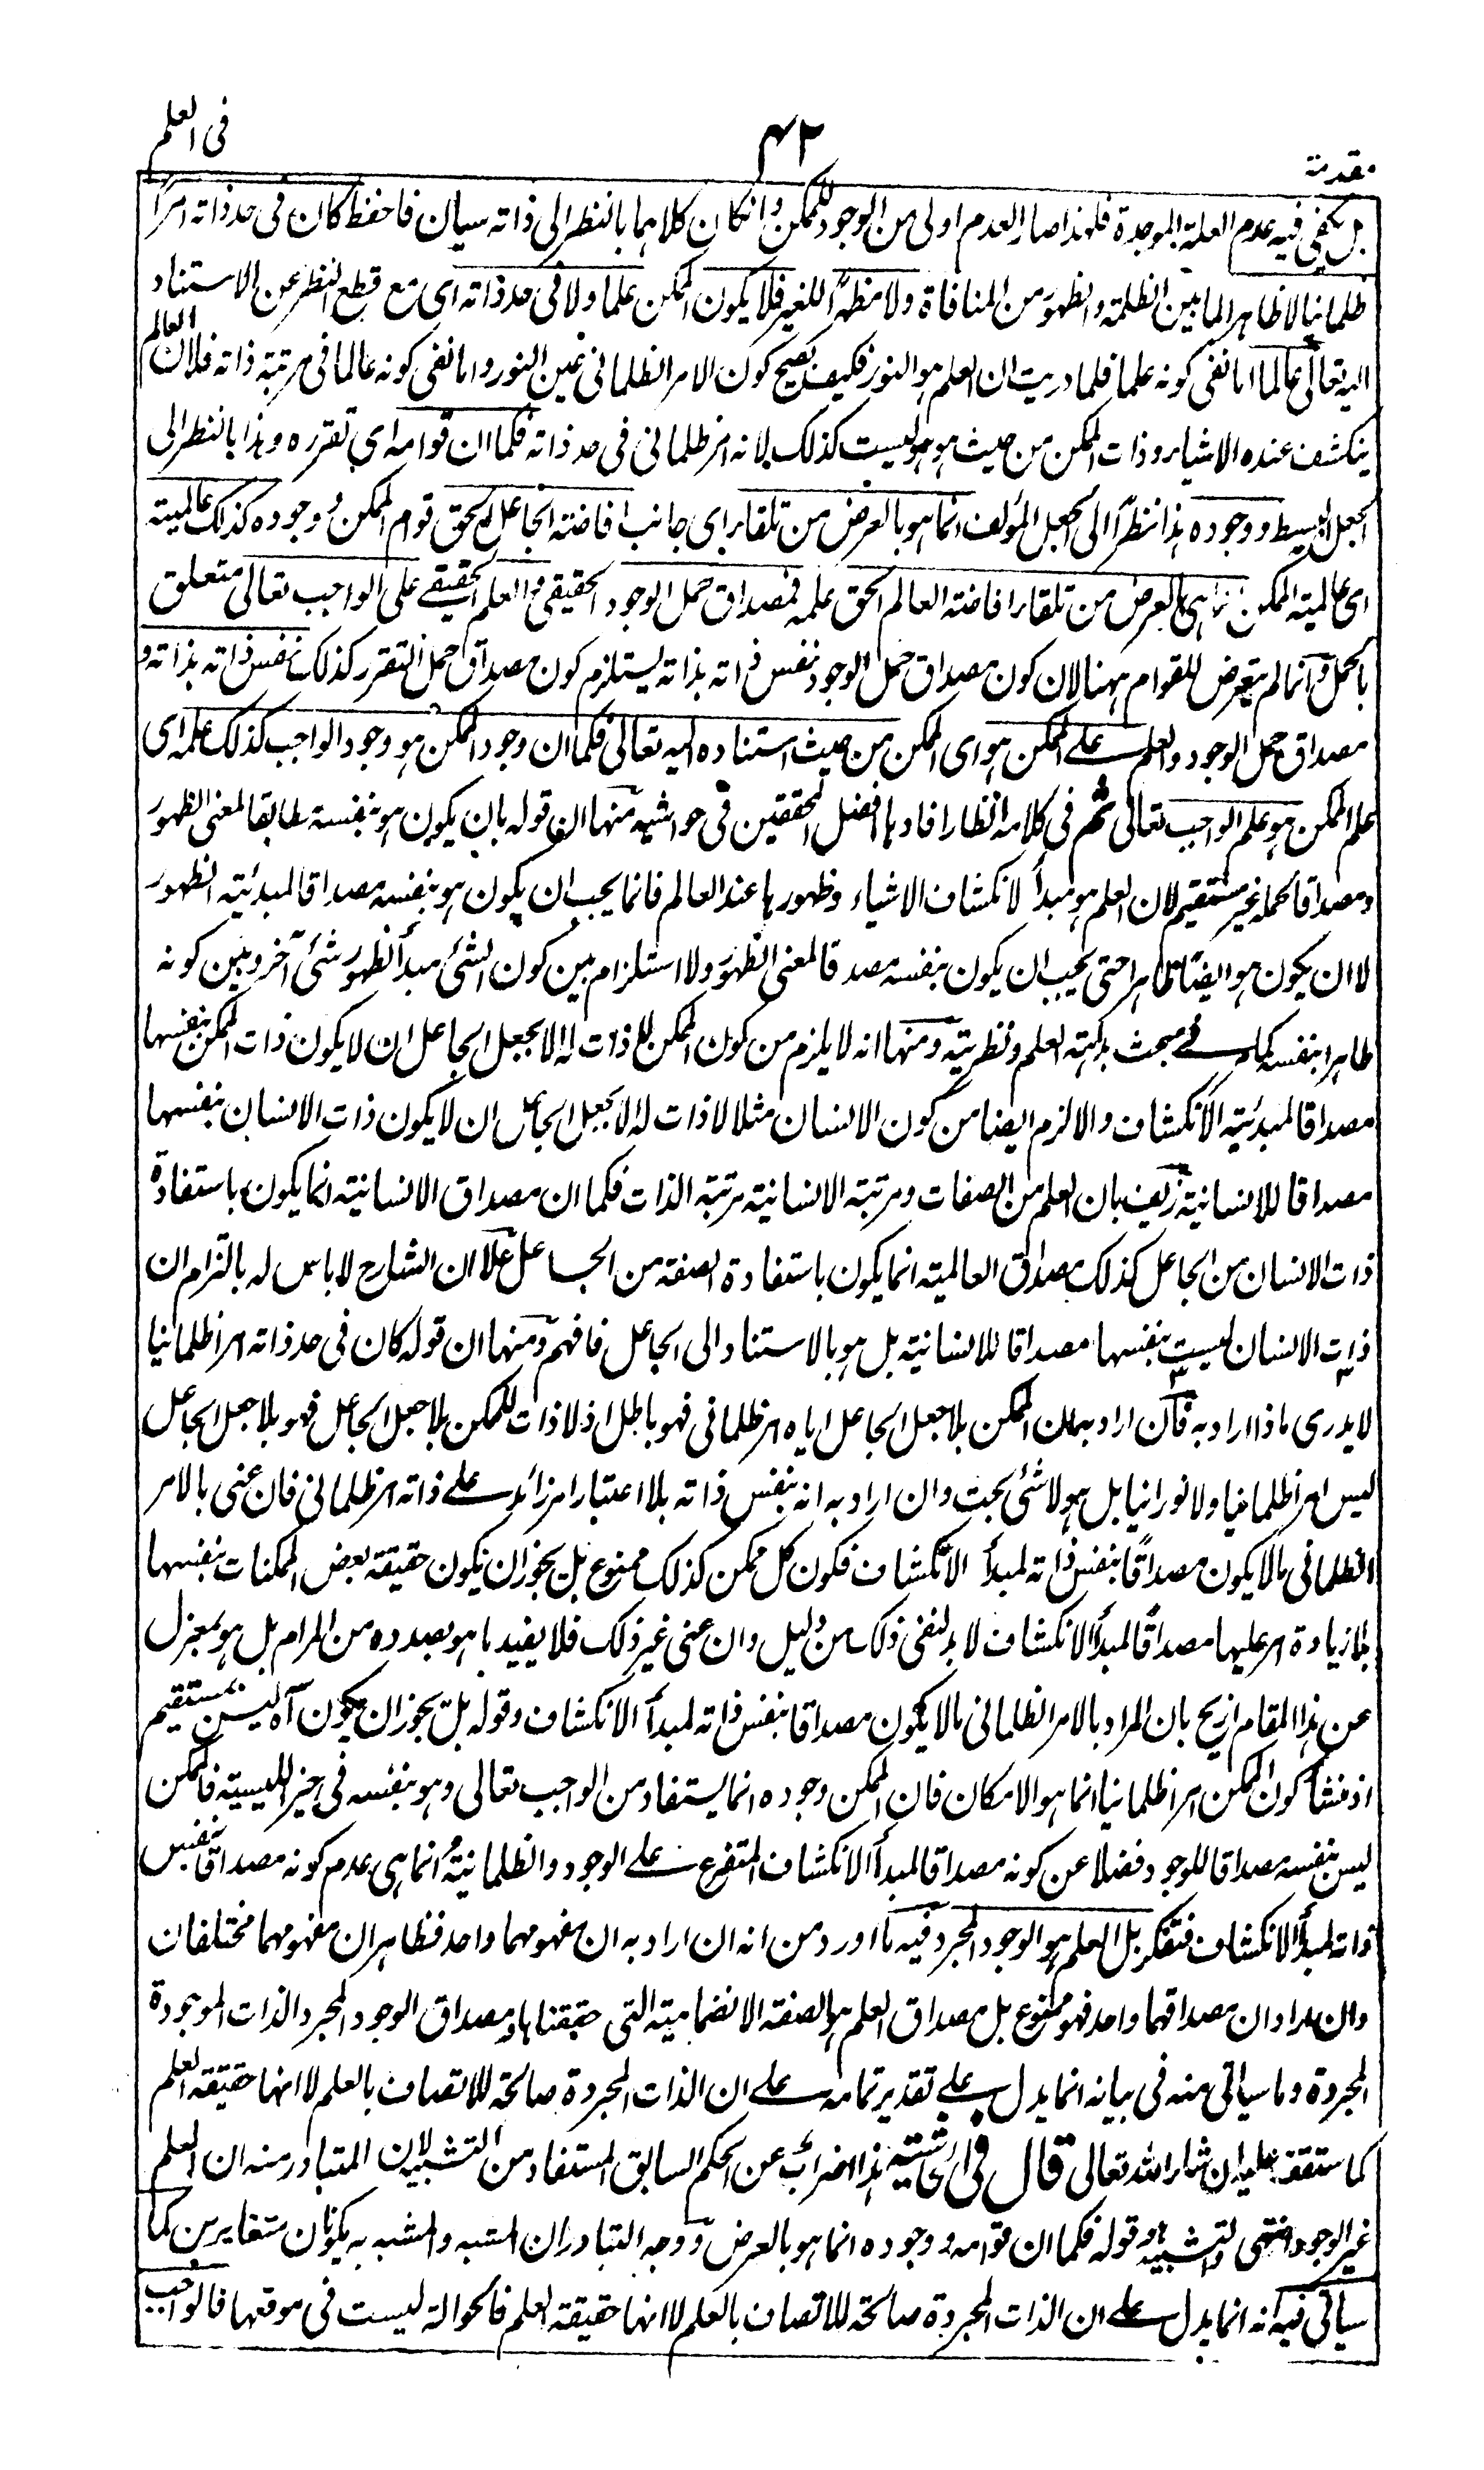 مقدمة
۴۲
فى العلم
بل يكفى فيه عدم العلة الموجدة فلهذا صار العدم اولى من الوجود للممكن وانكان كلاهما بالنظر الى ذاته سيان فاحفظ كان فى حد ذاته امرًا
ظلمانيا لا ظاهرا لما بين الظلمة والظهور من المنافاة ولا مظهرًا للغير فلا يكون الممكن علما ولا فى حد ذاته اى مع قطع النظر عن الاستناد
اليه تعالى عالما اما نفى كونه علما فلما دريت ان العلم هو النور فكيف يصح كون الامر الظلمانى عين النور واما نفى كونه عالما فى مرتبة ذاته فلان العالم
ينكشف عنده الاشياء وذات الممكن من حيث هو هو ليست كذلك لانه امر ظلمانى فى حد ذاته فكما ان قوامه اى تقرره وهذا بالنظر الى
الجعل البسيط ووجوده هذا نظرًا الى الجعل المؤلف انما هو بالعرض من تلقاء اى جانب افاضة الجاعل الحق قوام الممكن ووجوده كذلك عالميته
اى عالمية الممكن انما هى بالعرض من تلقاء افاضة العالم الحق علمه فمصداق حمل الوجود الحقيقى والعلم الحقيقے على الواجب تعالى متعلق
بالحمل وانما لم يتعرض للقوام ههنا لان كون مصداق حمل الوجود نفس ذاته بذاته يستلزم كون مصداق حمل التقرر كذلك نفس ذاته بذاته و
مصداق حمل الوجود والعلم علے الممكن هو اى الممكن من حيث استناده اليه تعالى فكما ان وجود الممكن هو وجود الواجب كذلك علمه اى
علم الممكن هو علم الواجب تعالى ثم فى كلامه انظار افادها افضل المحققين فى حواشيه منها ان قوله بان يكون هو بنفسه مطابقا لمعنى الظهور
ومصداقا لحمله غير مستقيم لان العلم هو مبدأ لانكشاف الاشياء وظهورها عند العالم فانما يجب ان يكون هو بنفسه مصداقا لمبدئية الظهور
لا ان يكون هو ايضًا ظاهرا حتى يجب ان يكون بنفسه مصدقا لمعنى الظهور ولا استلزام بين كون الشئ مبدأ لظهور شئ آخر وبين كونه
ظاهرا بنفسه كما فے مبحث بداهة العلم ونظريته ومنها انه لا يلزم من كون الممكن لا ذات له الا بجعل الجاعل ان لا يكون ذات الممكن بنفسها
مصداقا لمبدئية الانكشاف والا لزم ايضا من كون الانسان مثلا لا ذات له الا بجعل الجاعل ان لا يكون ذات الانسان بنفسها
مصداقا للانسانية زيف بان العلم من الصفات ومرتبة الانسانية مرتبة الذات فكما ان مصداق الانسانية انما يكون باستفادة
ذات الانسان من الجاعل كذلك مصداق العالمية انما يكون باستفادة الصفة من الجاعل علا ان الشارح لا باس له بالتزام ان
ذات الانسان ليست بنفسها مصداقا للانسانية بل هو بالاستناد الى الجاعل فافهم ومنها ان قوله كان فى حد ذاته امرا ظلمانيا
لا يدرى ماذا اراد به فان اراد به ان الممكن بلا جعل الجاعل اياه امر ظلمانى فهو باطل اذ لا ذات للممكن بلا جعل الجاعل فهو بلا جعل الجاعل
ليس امرا ظلمانيا ولا نورانيا بل هو لا شئ بحت وان اراد به انه بنفس ذاته بلا اعتبار امر زائد علے ذاته امر ظلمانى فان عنى بالامر
الظلمانى ما لا يكون مصداقًا بنفس ذاته لمبدأ الانكشاف فكون كل ممكن كذلك ممنوع بل يجوز ان يكون حقيقة بعض الممكنات بنفسها
بلا زيادة امر عليها مصداقًا لمبدأ الانكشاف لا بد لنفى ذلك من دليل وان عنى غير ذلك فلا يفيد ما هو بصدده من المرام بل هو بمعزل
عن هذا المقام ازيح بان المراد بالامر الظلمانى ما لا يكون مصداقا بنفس ذاته لمبدأ الانكشاف وقوله بل يجوز ان يكون آه ليس بمستقيم
اذ منشأ كون الممكن امرا ظلمانيا انما هو الامكان فان الممكن وجوده انما يستفاد من الواجب تعالى وهو بنفسه فى حيز الليسية فالممكن
ليس بنفسه مصداقا للوجود فضلا عن كونه مصداقا لمبدأ الانكشاف المتفرع علے الوجود والظلمانية انما هى عدم كونه مصداقا بنفس
ذاته لمبدأ الانكشاف فتفكر بل العلم هو الوجود المجرد فيه ما اورد من انه ان اراد به ان مفهومهما واحد فظاهر ان مفهومهما مختلفان
وان اراد ان مصداقهما واحد فهو ممنوع بل مصداق العلم هو الصفة الانضمامية التى حققناها ومصداق الوجود المجرد الذات الموجودة
المجردة وما سياتى منه فى بيانه انما يدل علے تقدير تمامه علے ان الذات المجردة صالحة للاتصاف بالعلم لا انها حقيقة العلم
كما ستقف عليه ان شاء الله تعالى قال فى الحاشية هذا اضراب عن الحكم السابق المستفاد من التشبيه لان المتبادر منه ان العلم
غير الوجود انتهى والتشبيه هو قوله فكما ان قوامه ووجوده انما هو بالعرض ووجه التبادر ان المشبه والمشبه به يكونان متغايرين كما
سياتى فيه انه انما يدل علے ان الذات المجردة صالحة للاتصاف بالعلم لا انها حقيقة العلم فالحوالة ليست فى موقعها فالواجب